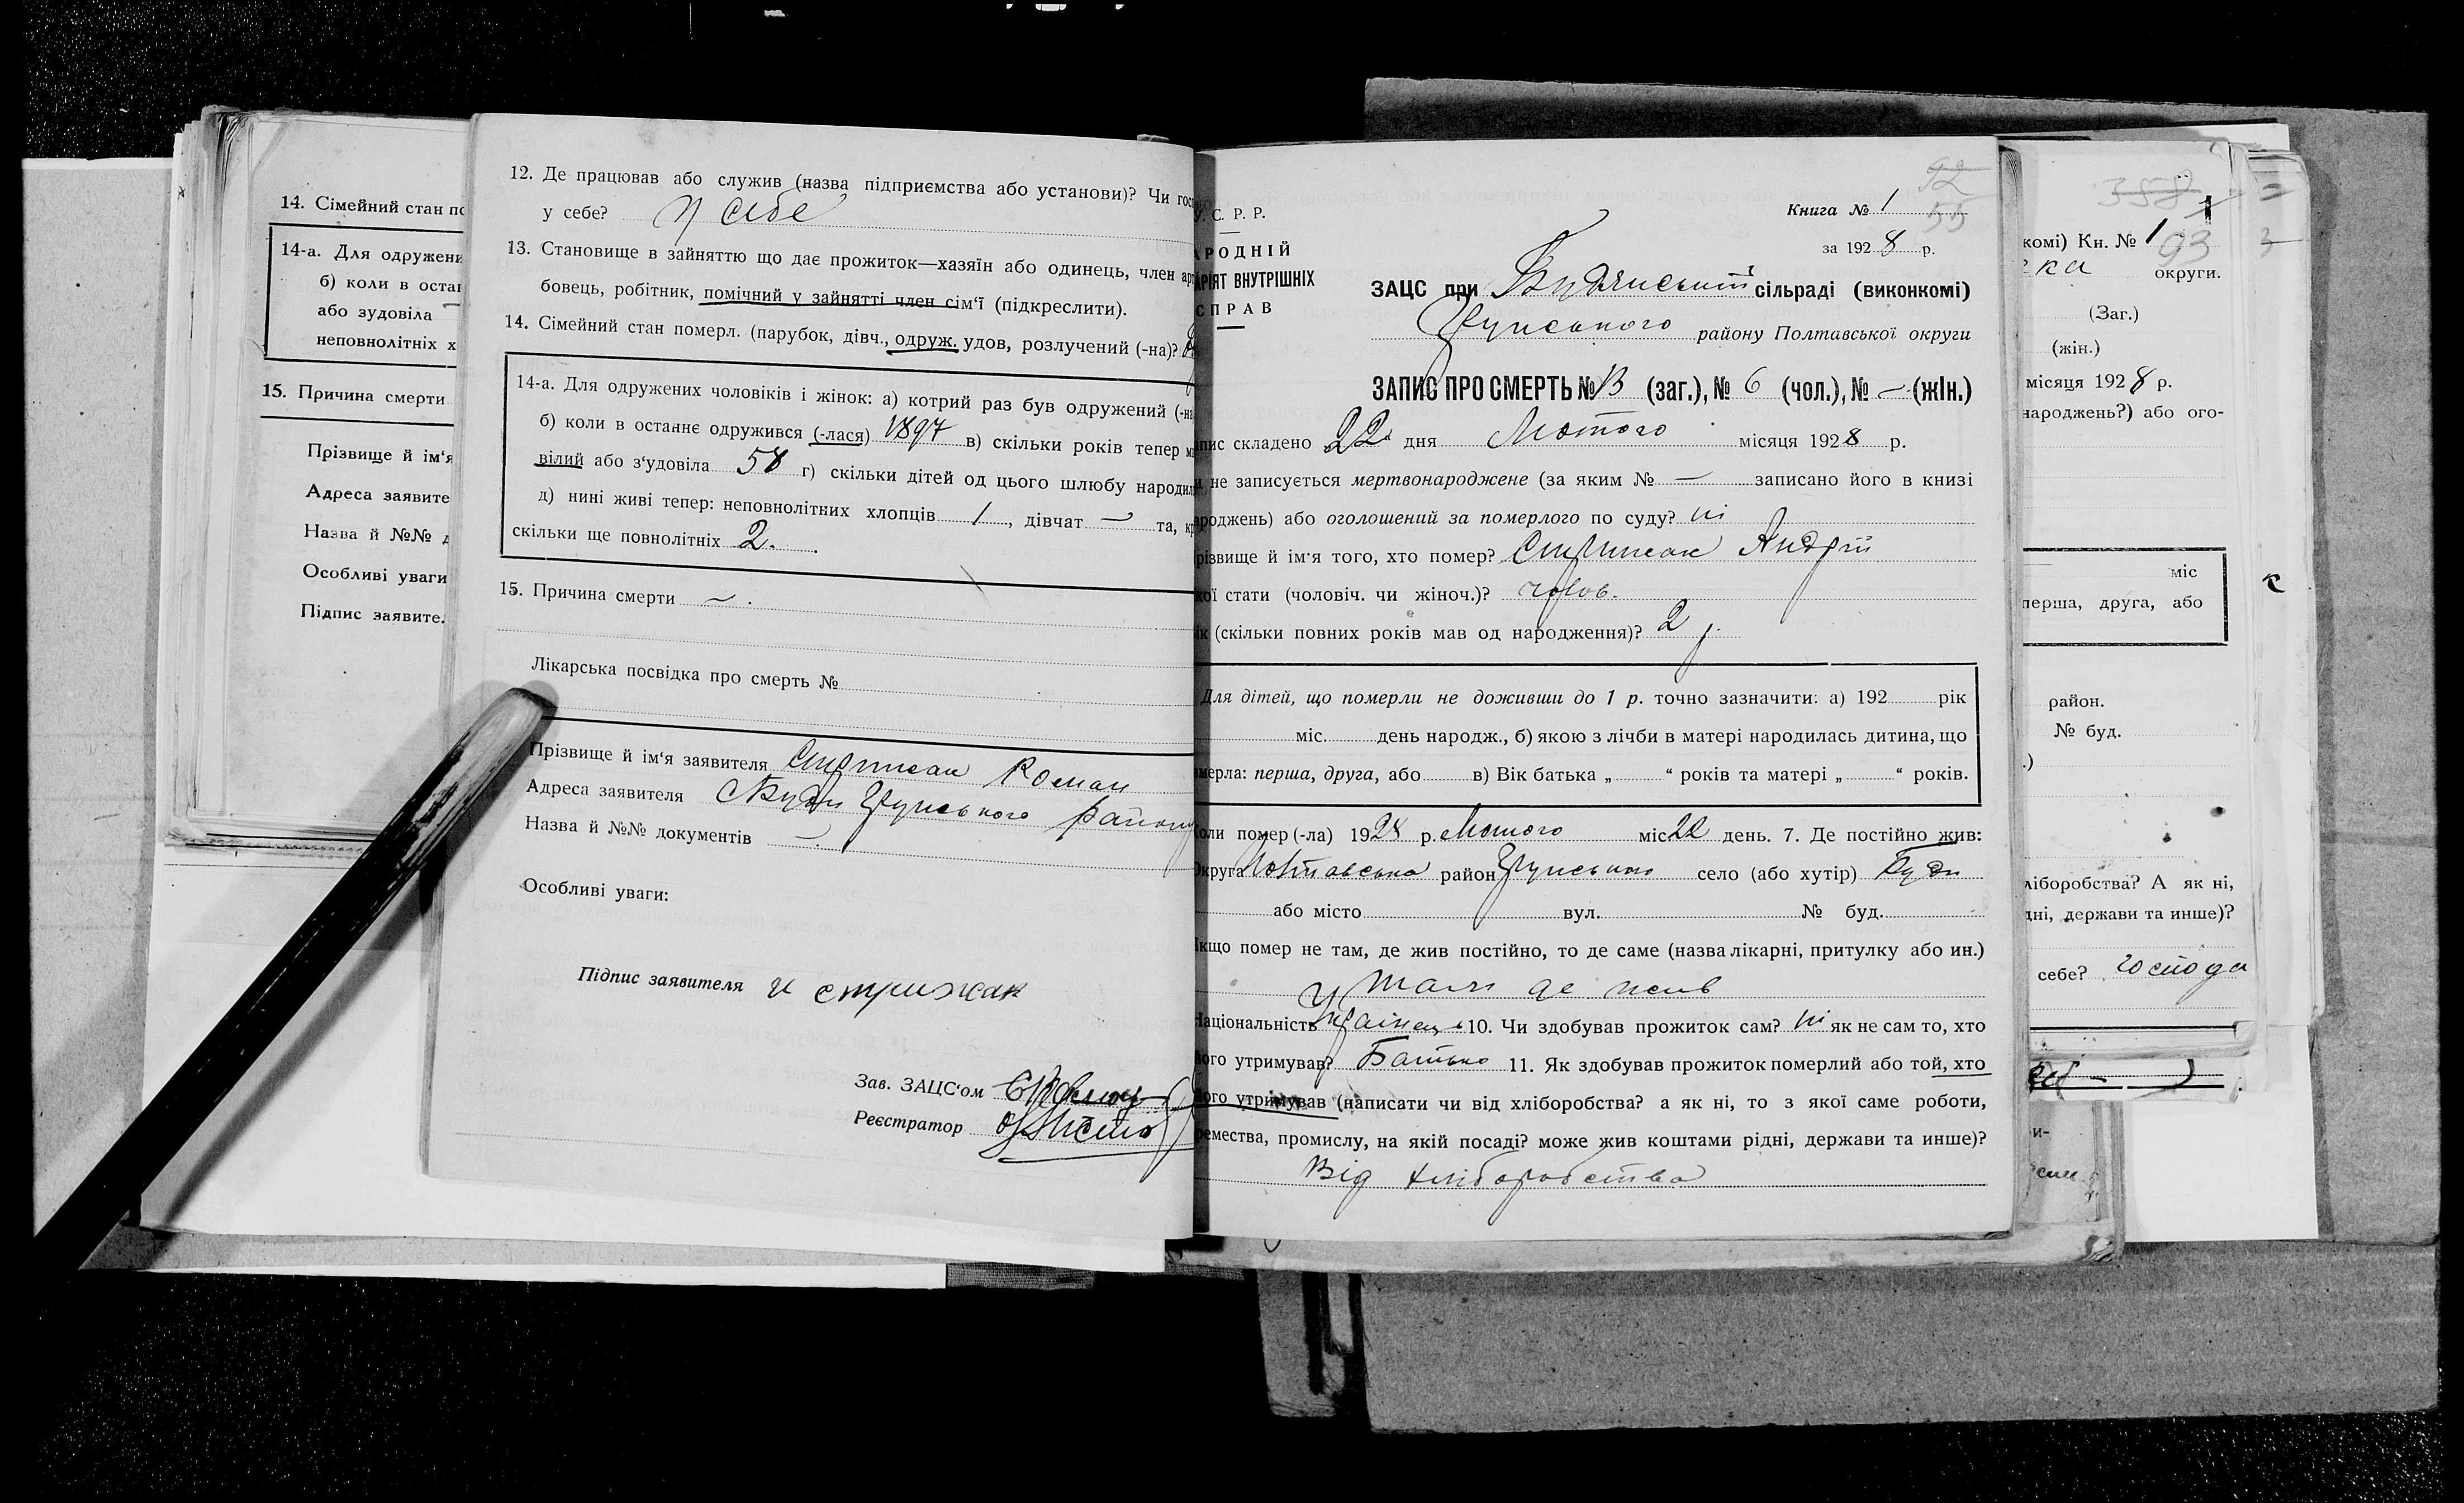 14. Сімейний стан по
14-а. Для одружени
б) коли в остан
або зудовіла
неповнолітніх х
15. Причина смерти
Прізвище й ім‘я
Адреса заявите
Назва й №№ д
Особливі уваги
Підпис заявите
12. Де працював або служив (назва підприємства або установи)? Чи гос
у себе? у себе
13. Становище в зайняттю що дає прожиток—хазяїн або одинець, член ар
бовець, робітник, помічний у зайнятті член сім‘ї (підкреслити).
14. Сімейний стан померл. (парубок, дівч., одруж. удов, розлучений (-на)?
14-а. Для одружених чоловіків і жінок: а) котрий раз був одружений (-на
б) коли в останнє одружився (-лася) 1897 в) скільки років тепер м
вілий або з‘удовіла 58 г) скільки дітей од цього шлюбу народил
д) нині живі тепер: неповнолітних хлопців 1, дівчат — та, к
скільки ще повнолітніх 2.
15. Причина смерти — .
Лікарська посвідка про смерть №
Прізвище й ім‘я заявителя Стрижак Роман
Адреса заявителя с Буди Грунського району
Назва й №№ документів —.
Особливі уваги:
Підпис заявителя и стрижак
Зав. ЗАЦС‘ом
Реєстратор
У. С. Р. Р.
АРОДНІЙ
АРІЯТ ВНУТРІШНІХ
СПРАВ
92
55
Книга № 1
за 1928 р.
ЗАЦС при Будянській сільраді (виконкомі)
Грунського району Полтавської округи
ЗАПИС ПРО СМЕРТЬ № 13 (заг.), № 6 (чол.), № — (жін.)
апис складено 22 дня Лютого місяця 1928 р.
и не записується мертвонароджене (за яким № — записано його в книзі
ароджень) або оголошений за померлого по суду? ні
різвище й ім'я того, хто помер? Стрижак Андрій
кої стати (чоловіч. чи жіноч.)? чолов.
ік (скільки повних років мав од народження)? 2 р.
Для дітей, що померли не доживши до 1 р. точно зазначити: а) 192 рік
міс. день народж., б) якою з лічби в матері народилась дитина, що
мерла: перша, друга, або в) Вік батька „ “ років та матері „ “ років.
оли помер (-ла) 1928 р. Лютого міс 22 день. 7. Де постійно жив:
Округа Полтавська район Грунський село (або хутір) Буди
або місто вул. № буд.
кщо помер не там, де жив постійно, то де саме (назва лікарні, притулку або ин.)
там де жив
Національність Українец 10. Чи здобував прожиток сам? ні як не сам то, хто
ого утримував? Батько 11. Як здобував прожиток померлий або той, хто
ого утримував (написати чи від хліборобства? а як ні, то з якої саме роботи,
ремества, промислу, на якій посаді? може жив коштами рідні, держави та инше)?
Від хліборобства
358
1
комі) Кн. № 1
93
ка округи.
(Заг.)
(жін.)
місяця 1928 р.
народжень?) або ого-
міс
перша, друга, або
район.
№ буд.
.)
ліборобства? А як ні,
дні, держави та инше)?
себе? господа
и-